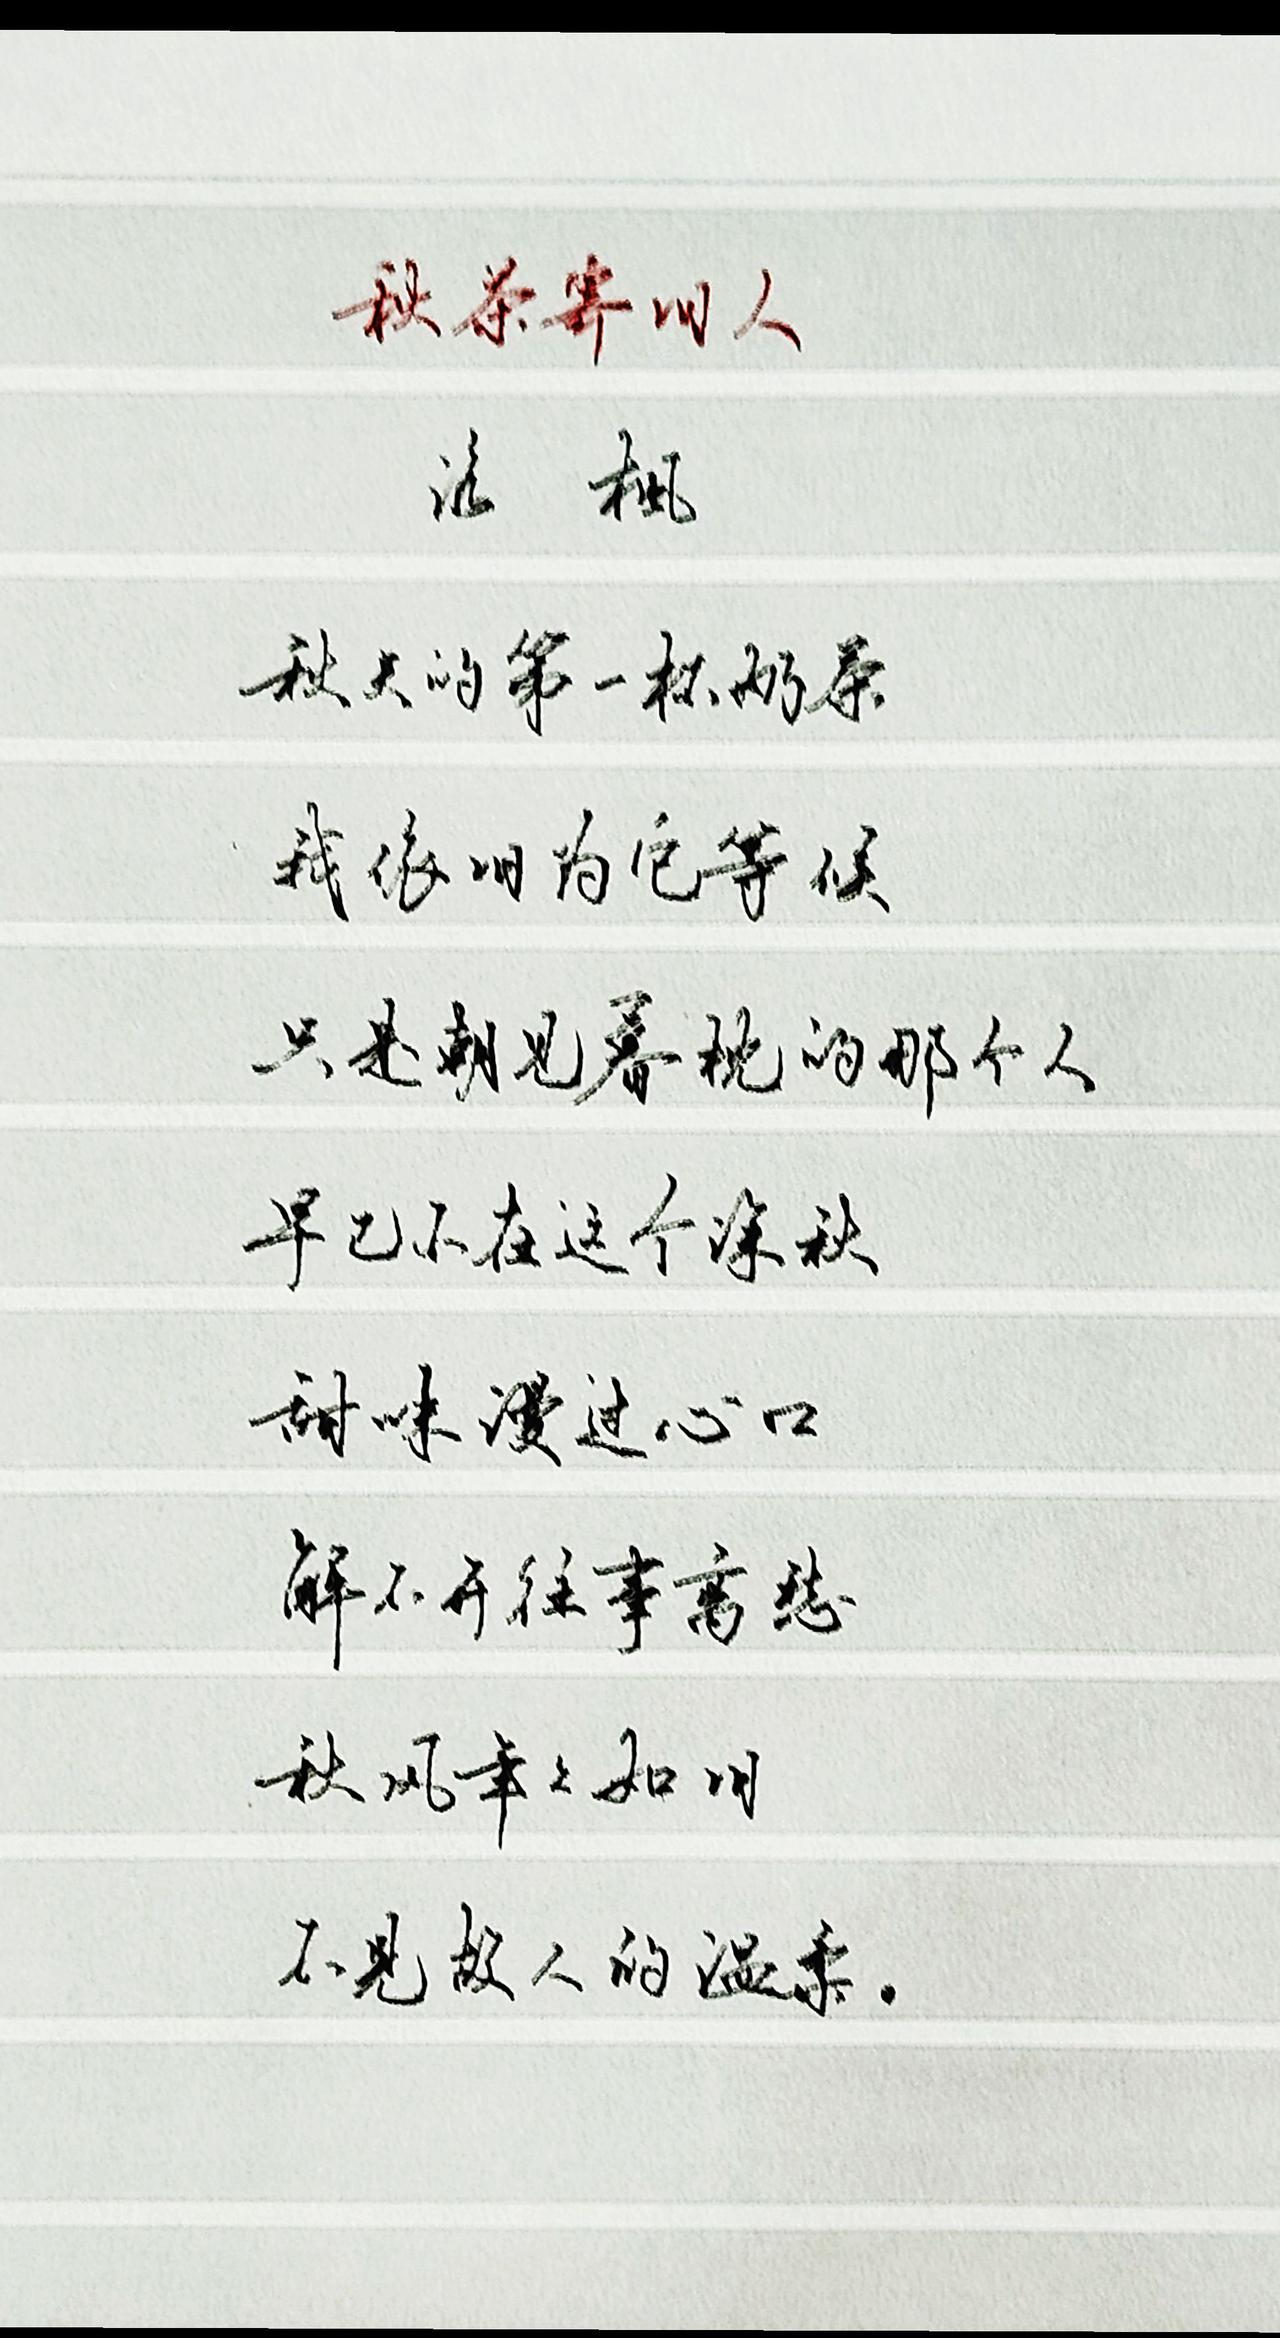 秋茶寄旧人
落 枫
秋天的第一杯奶茶
我依旧为它等候
只是朝见暮枕的那个人
早已不在这个深秋
甜味漫过心口
解不开往事离愁
秋风年年如旧
不见故人的温柔.